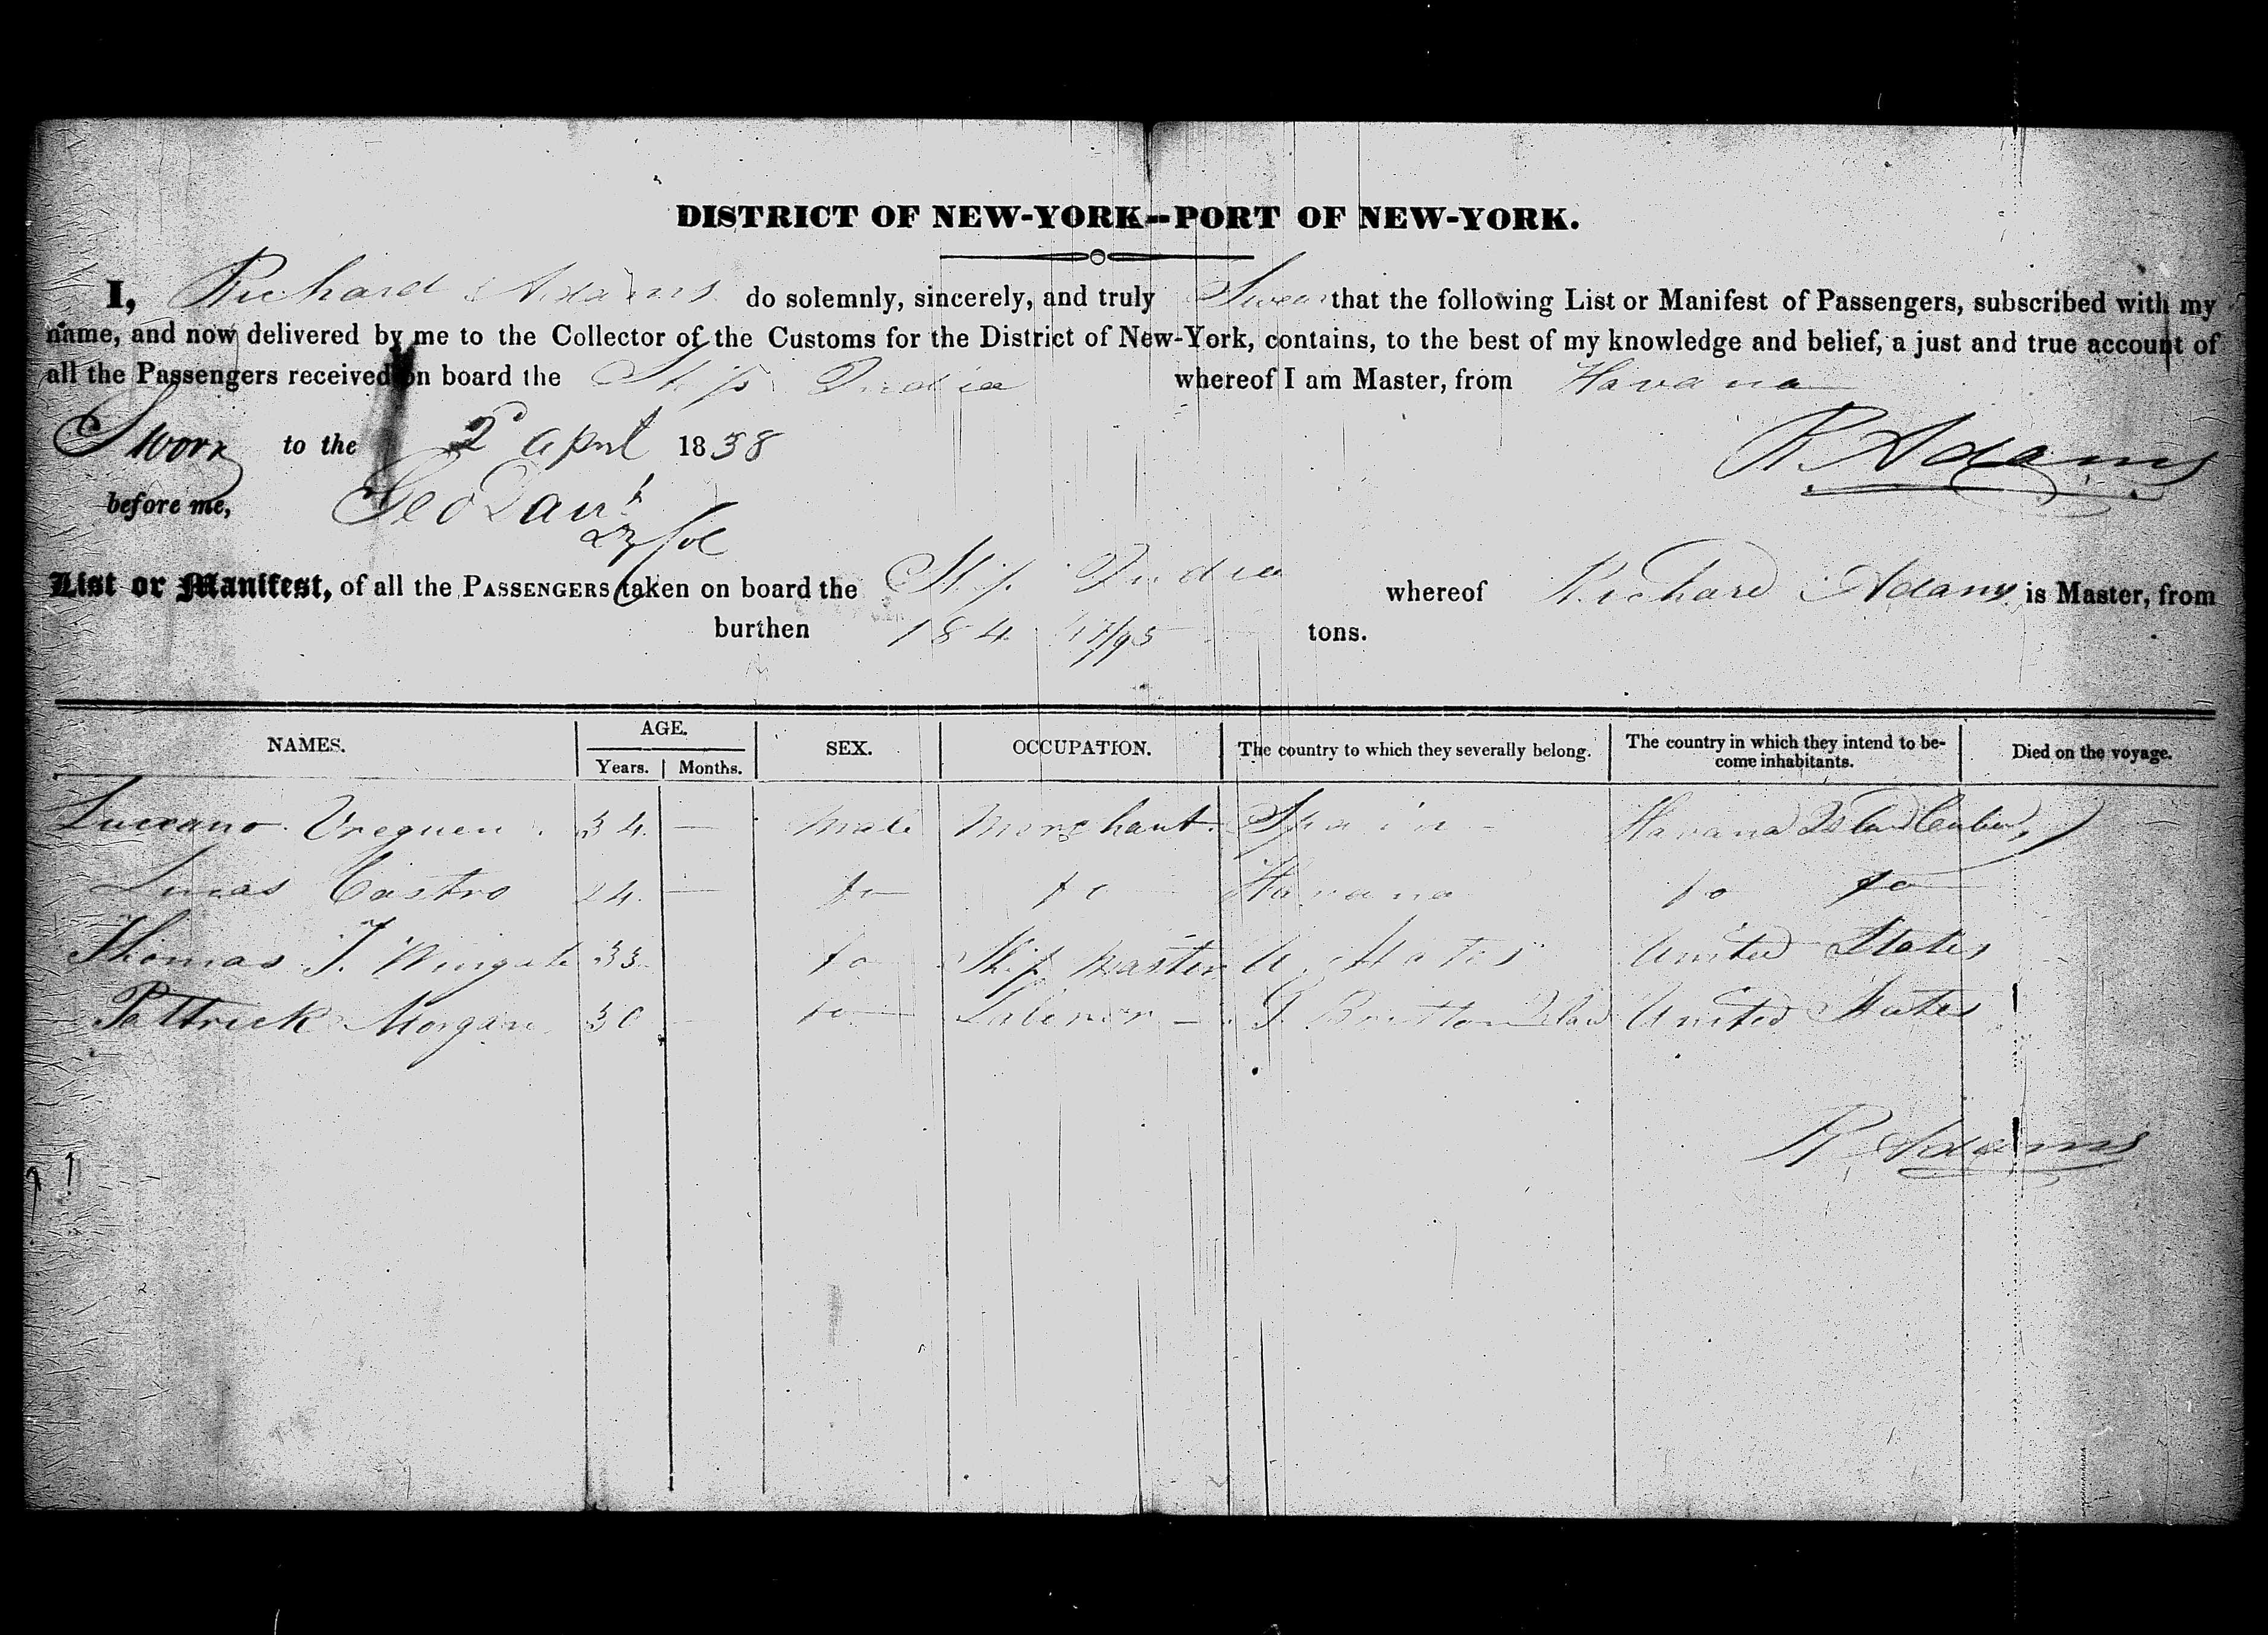 DISTRICT OF NEW-YORK--PORT OF NEW-YORK.
I, Richard Adams do solemnly, sincerely, and truly Swear that the following List or Manifest of Passengers, subscribed with my
name, and now delivered by me to the Collector of the Customs for the District of New-York, contains, to the best of my knowledge and belief, a just and true account of
all the Passengers received on board the Ship India whereof I am Master, from Havana
Sworn to the 2d April 1838 R. Adams
before me, Geo
List or Manifest, of all the PASSENGERS taken on board the Ship India whereof Richard Adams is Master, from
burthen 184 tons.
NAMES. AGE. SEX. OCCUPATION. The country to which they severally belong. The country in which they intend to be- Died on the voyage.
Years. Months. come inhabitants.
34 — Male Merchant. Spain Havana
Lucas Castro 24 — Do Do Havana Do Do
Thomas J. Wingate 33 Do Ship Master U. States United States
Pattrick Morgan 30 - Do Laborer — United States
R. Adams